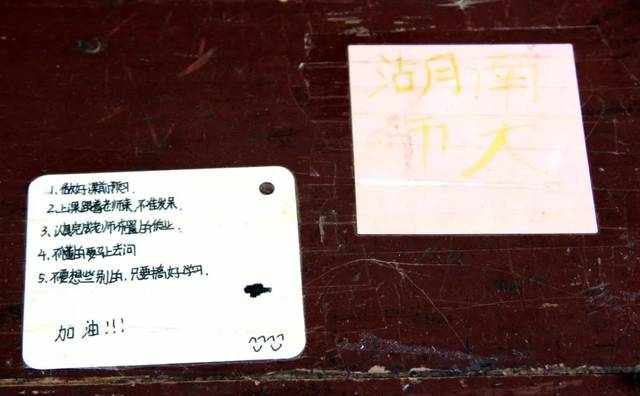 1. 做好课前预习.
2. 上课跟着老师来,不准发呆.
3. 认真完成老师布置的作业.
4. 不懂的要马上去问
5. 不要想些别的,只要搞好学习.
加油!!!
湖南
师大